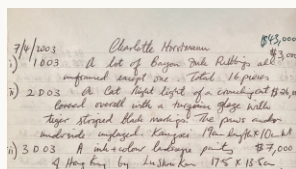 $43,000
7/4/2003 Charlotte Horstmann $3,000
i) 1D03 A lot of Bayon Dale Rubbings all
unframed except one. Total 16 pieces
ii) 2D03 A Cat Night light of a crouching cat
covered overall with a turquoise glaze with
tiger striped black markings. The paws and
underside unglazed. Kangxi 19cm length x 10cm
iii) 3D03 A ink + colour landscape $7,000
of Hong Kong by 178 x